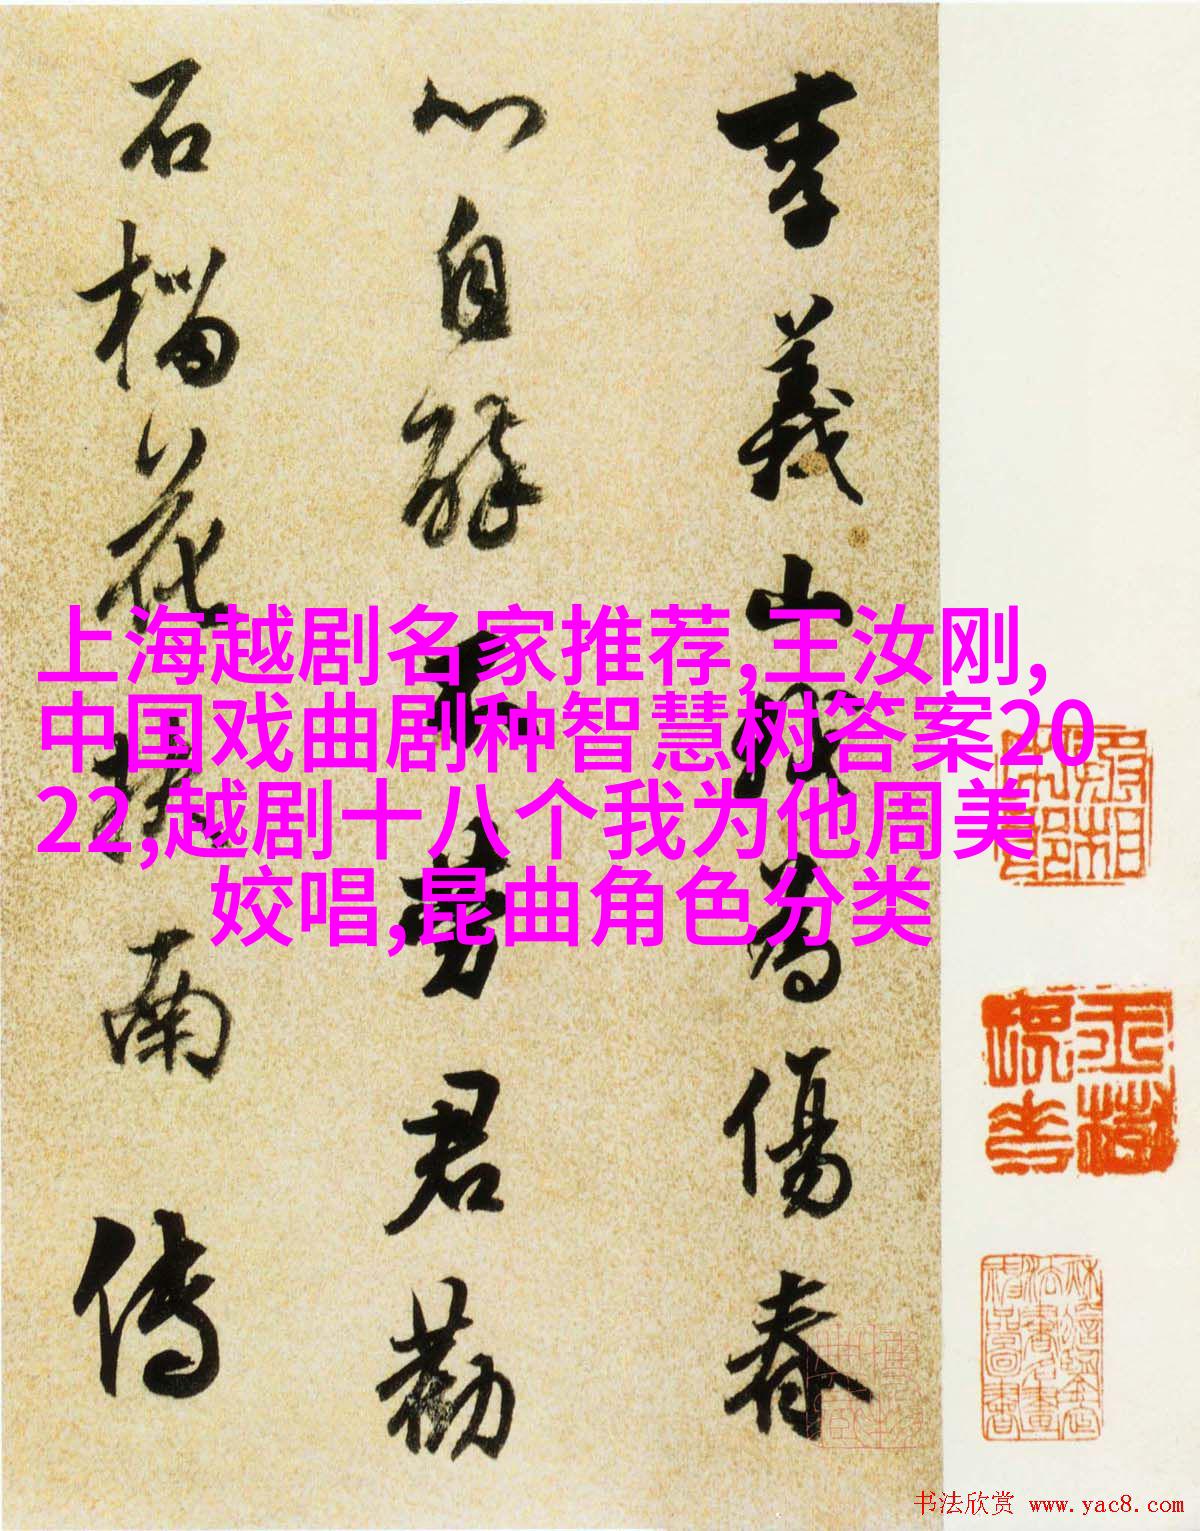 李義山戲爲傷春
心自醉不勞君勸
石榴花 南 傳
上海越剧名家推荐,王汝刚,
中国戏曲剧种智慧树答案20
22,越剧十八个我为他周美
姣唱,昆曲角色分类
书法欣赏 www.yac8.com